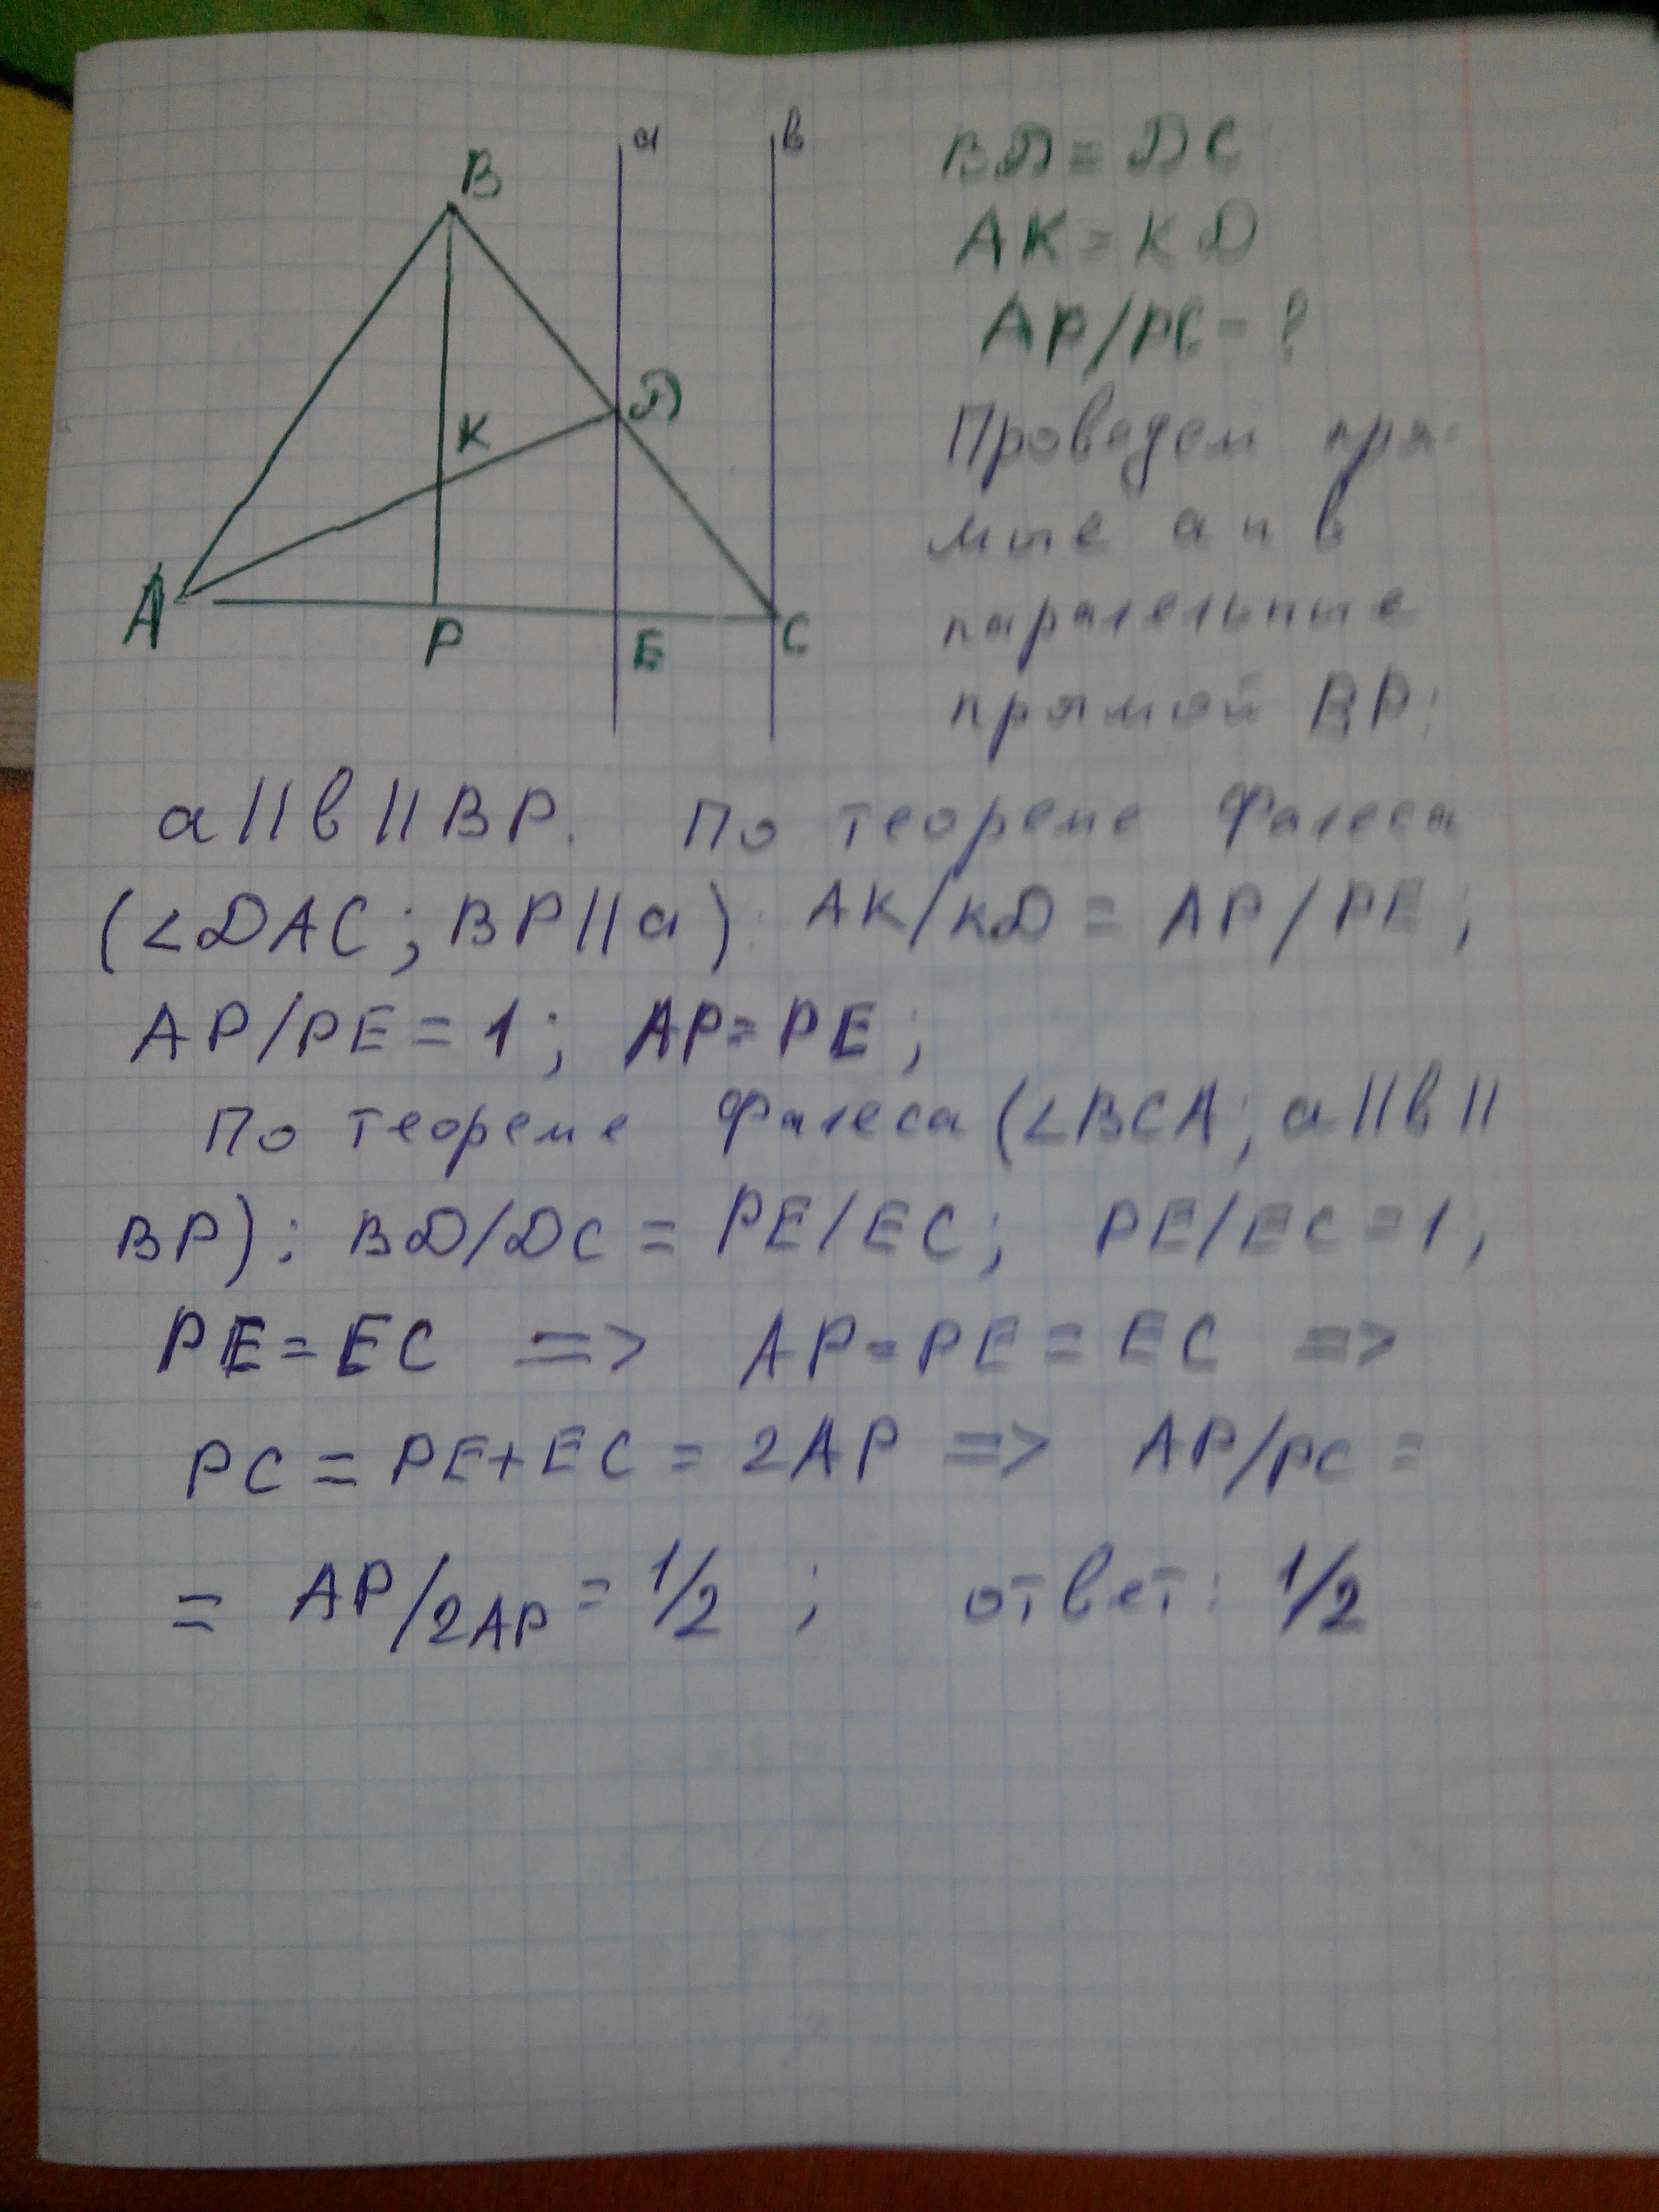 a
в
B
D
K
A
P
E
C
BD = DC
AK = KD
AP/PC - ?
Проведем пря-
мые a и в
паралельные
прямой BP:
a || в || BP. По теореме Фалеса
(<DAC; BP || a): AK/KD = AP/PE;
AP/PE = 1; AP = PE;
По теореме Фалеса (<BCA; a || в ||
BP): BD/DC = PE/EC; PE/EC = 1;
PE = EC => AP = PE = EC =>
PC = PE + EC = 2AP => AP/PC =
= AP/2AP = 1/2; ответ: 1/2